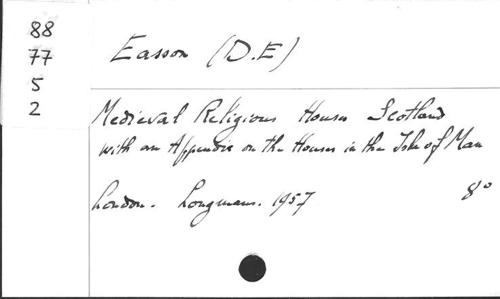 88
77
5
2
Easson (D.E)
Medieval Religious Houses Scotland
with an Appendix on the Houses in the Isle of Man
London. Longmans. 1957 8°